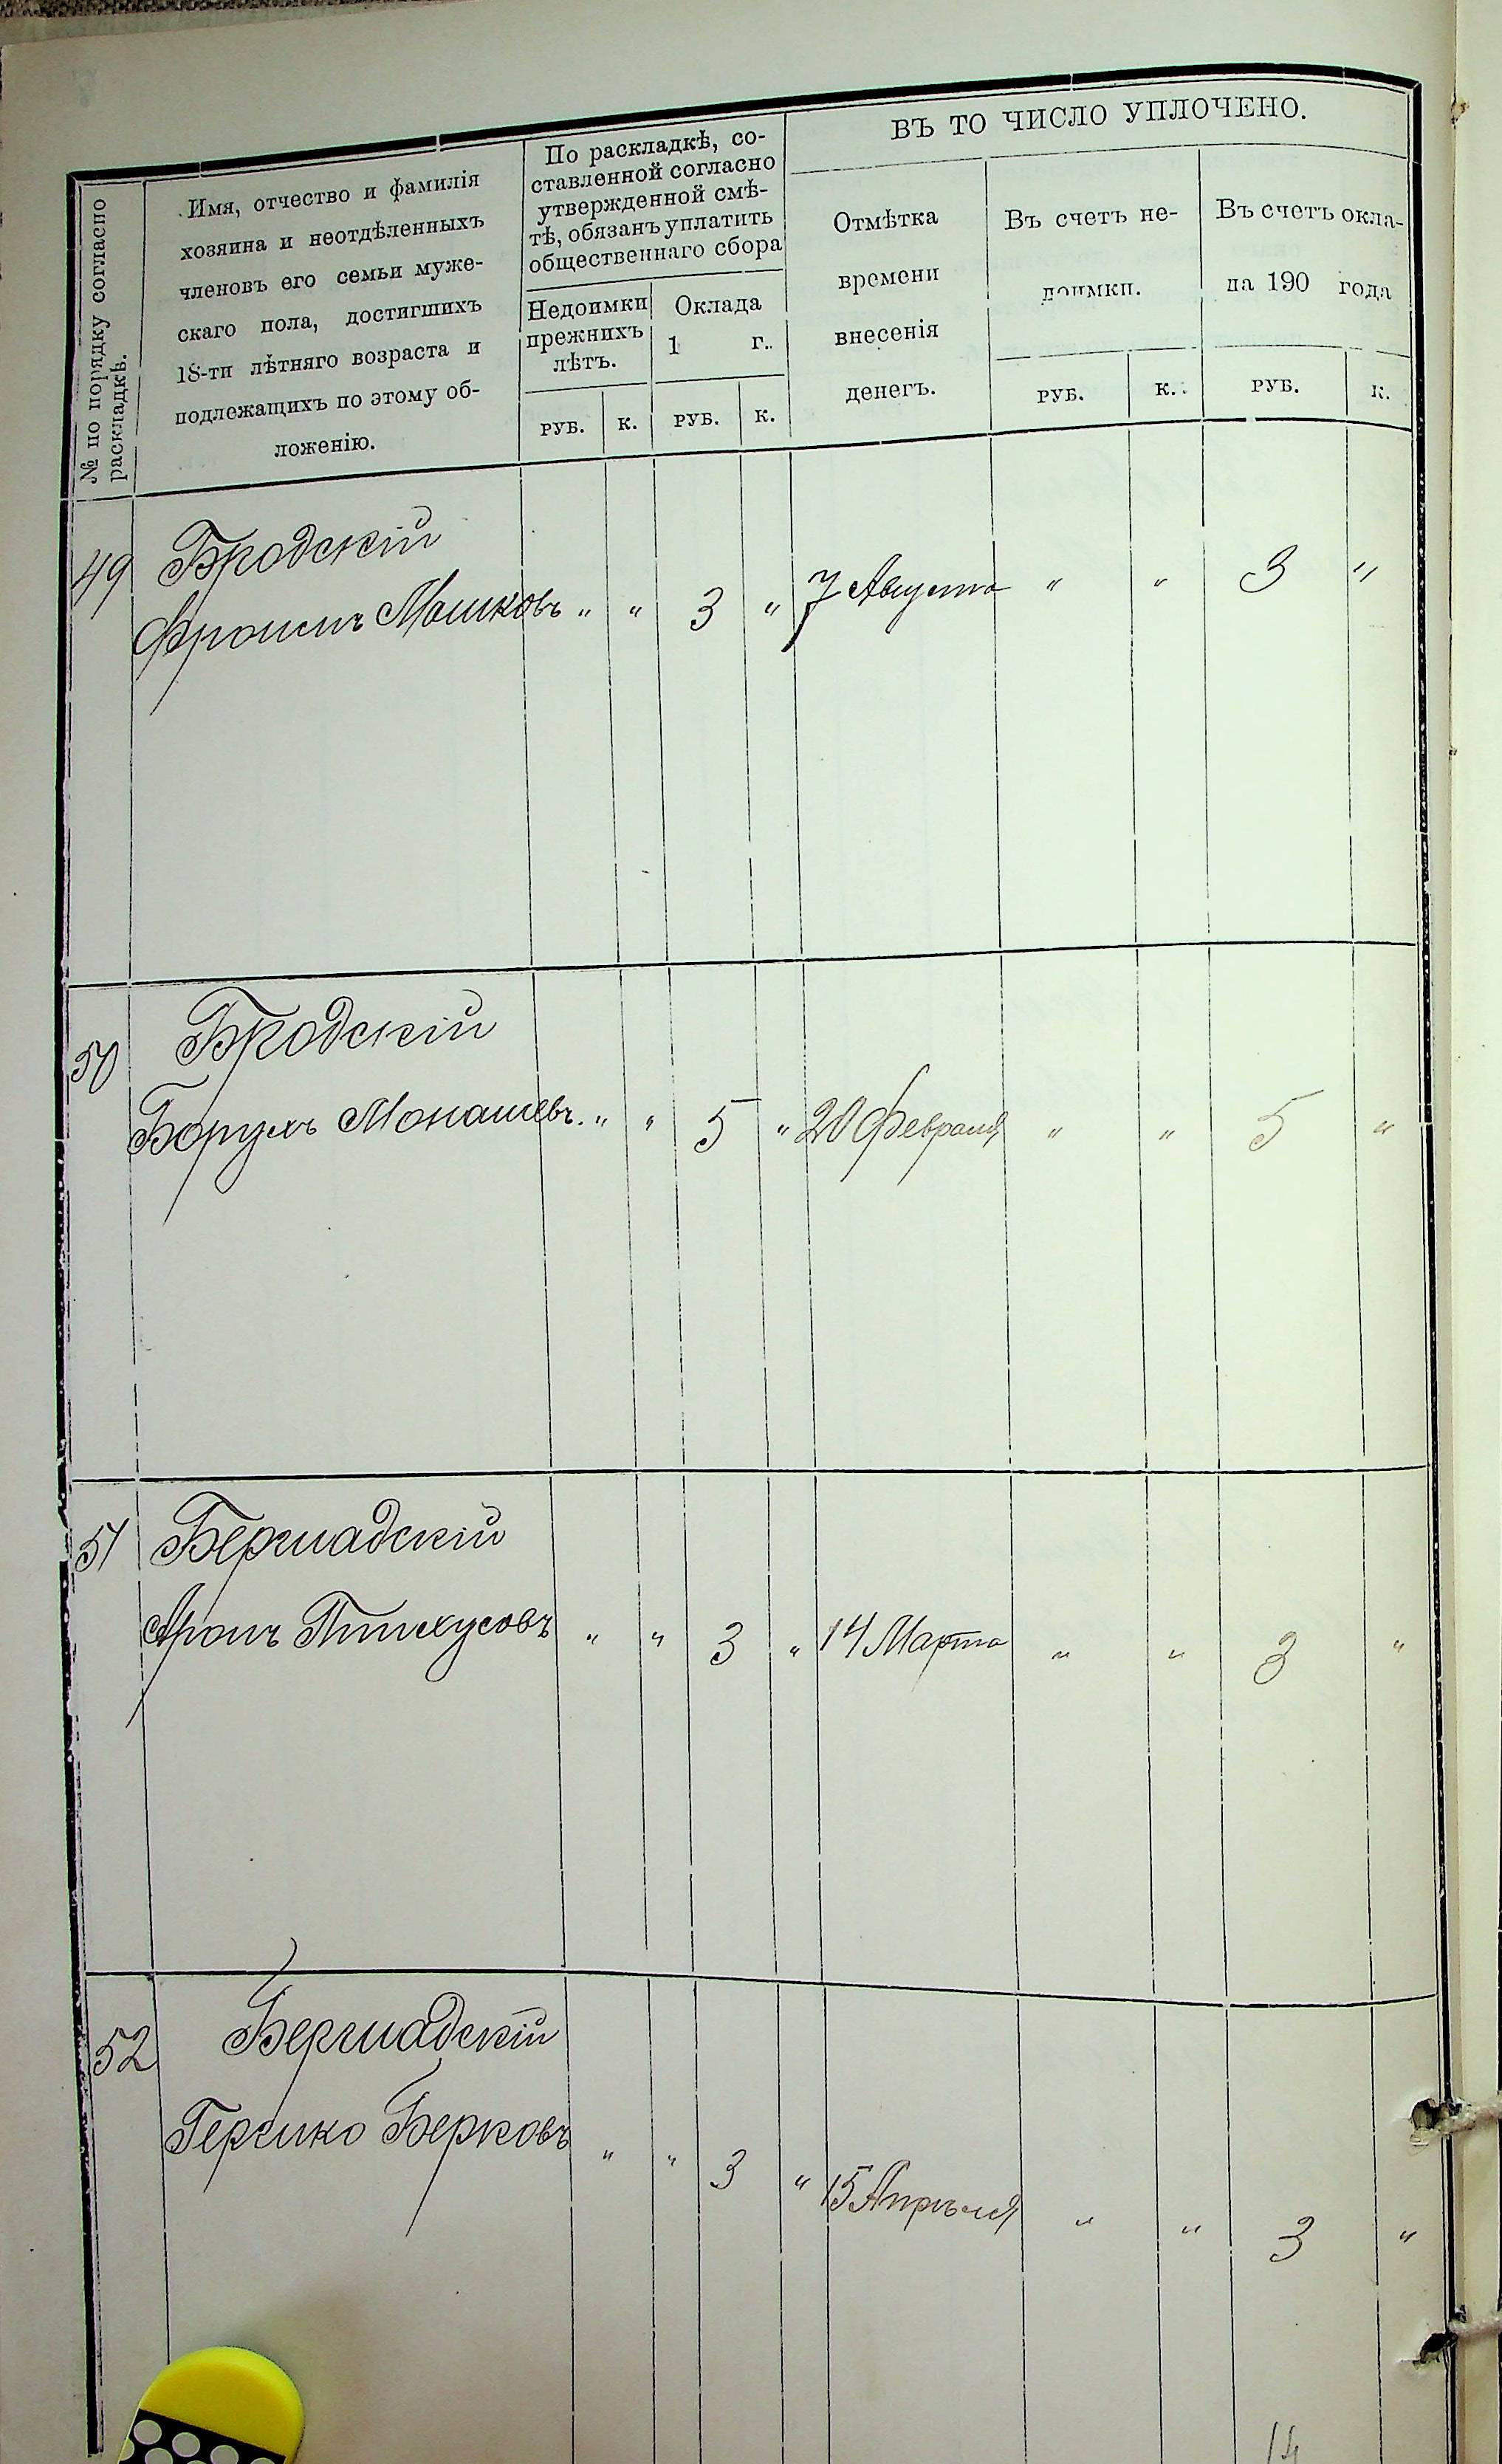 № по порядку согласно
раскладкѣ.
Имя, отчество и фамилія
хозяина и неотдѣленныхъ
членовъ его семьи муже-
скаго пола, достигшихъ
18-ти лѣтняго возраста и
подлежащихъ по этому об-
ложенію.
По раскладкѣ, со-
ставленной согласно
утвержденной смѣ-
тѣ, обязанъ уплатить
общественнаго сбора
Недоимки
прежнихъ
лѣтъ.
Оклада
1 г.
РУБ. К. РУБ. К.
ВЪ ТО ЧИСЛО УПЛОЧЕНО.
Отмѣтка
времени
внесенія
денегъ.
Въ счетъ не-
доимки.
РУБ. К.
Въ счетъ окла-
да 190 года
РУБ. К.
49 Бродскій
Фроимъ Мошковъ " " 3 " 7 Августа " " 3 "
50 Бродскій
Борухъ Монашевъ. " " 5 " 20 Февраля " " 5 "
51 Бершадскій
Аронъ Пинхусовъ " " 3 " 14 Марта " " 3 "
52 Бершадскій
Гершко Берковъ " " 3 " 15 Апрѣля " " 3 "
14